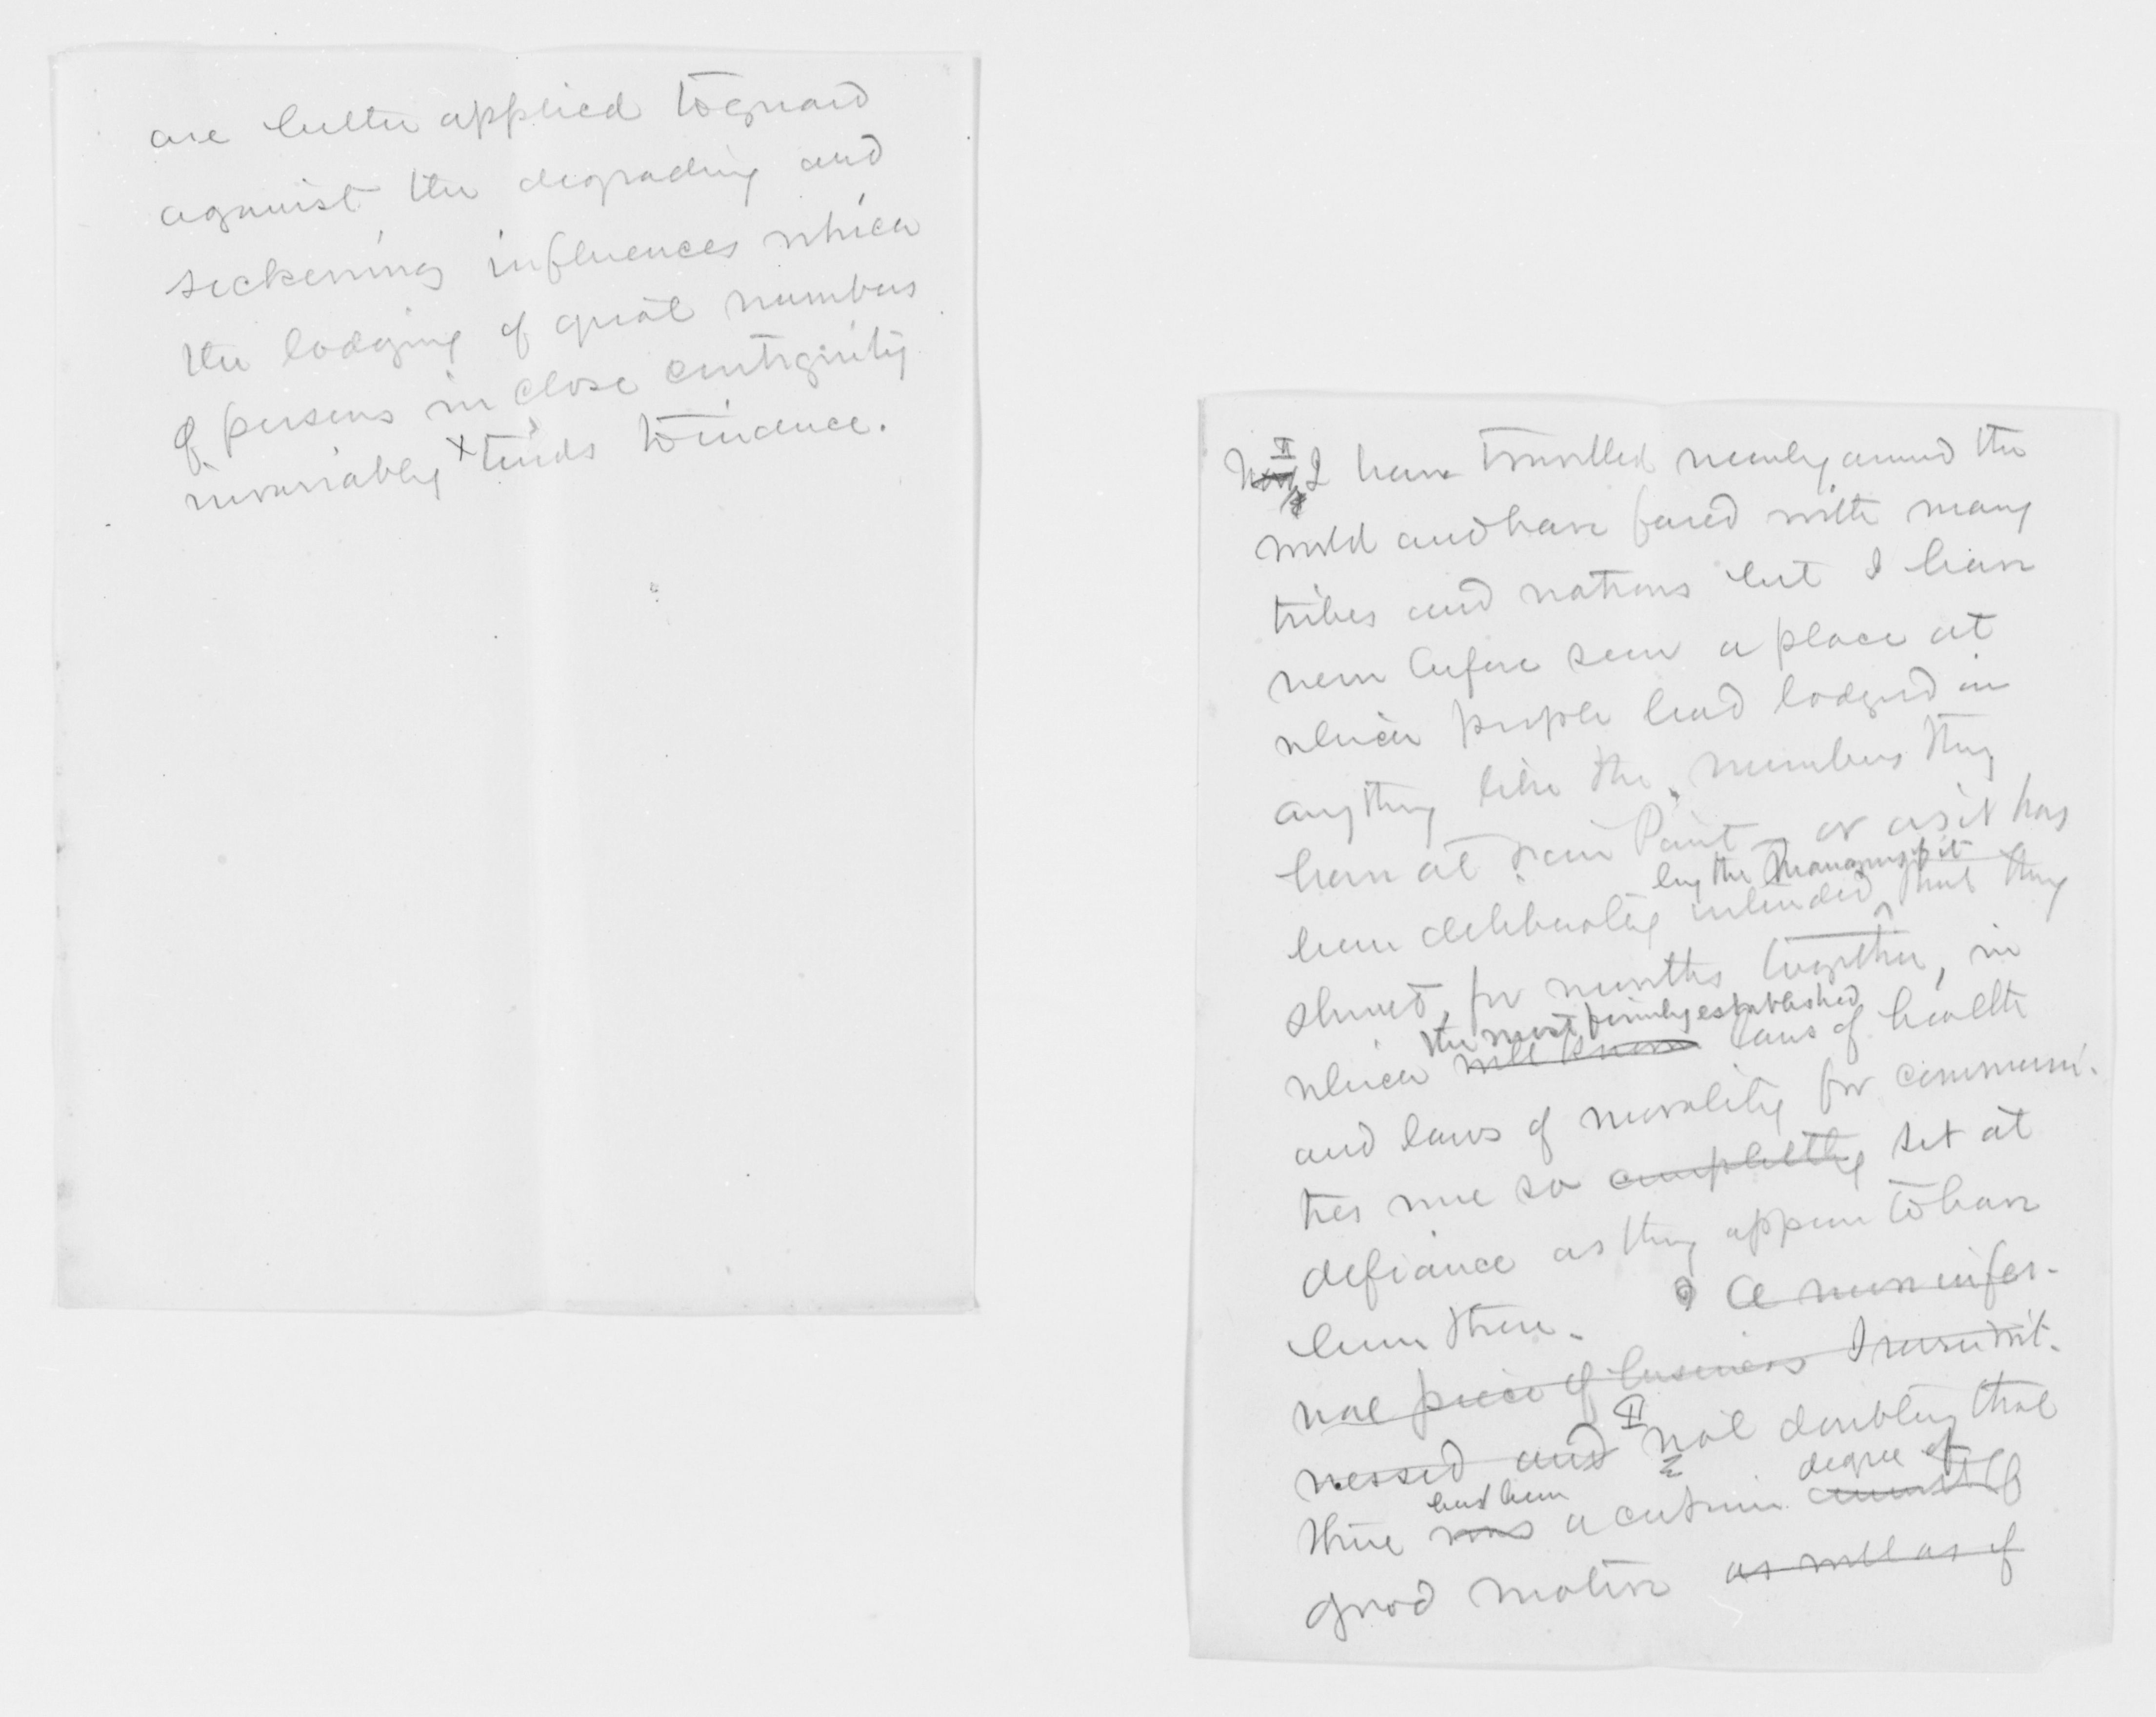 are better applied to guard
against the degrading and
sickening influences which
the lodging of great numbers
of persons in close contiguity
invariably x tends to induce.
I have travelled nearly around the
world and have fared with many
tribes and nations but I have
never before seen a place at
which people had lodged in
anything like the numbers they
have at Point or as it has
by the managers of it
been deliberately intended that they
should, for months together, in
the most firmly established
which well known laws of health
and laws of morality for communi-
ties were so completely set at
defiance as they appear to have
been there. A more infer-
nal piece of business I never wit-
nessed and not doubting that
had been degree of
there was a certain
good motive as well as of